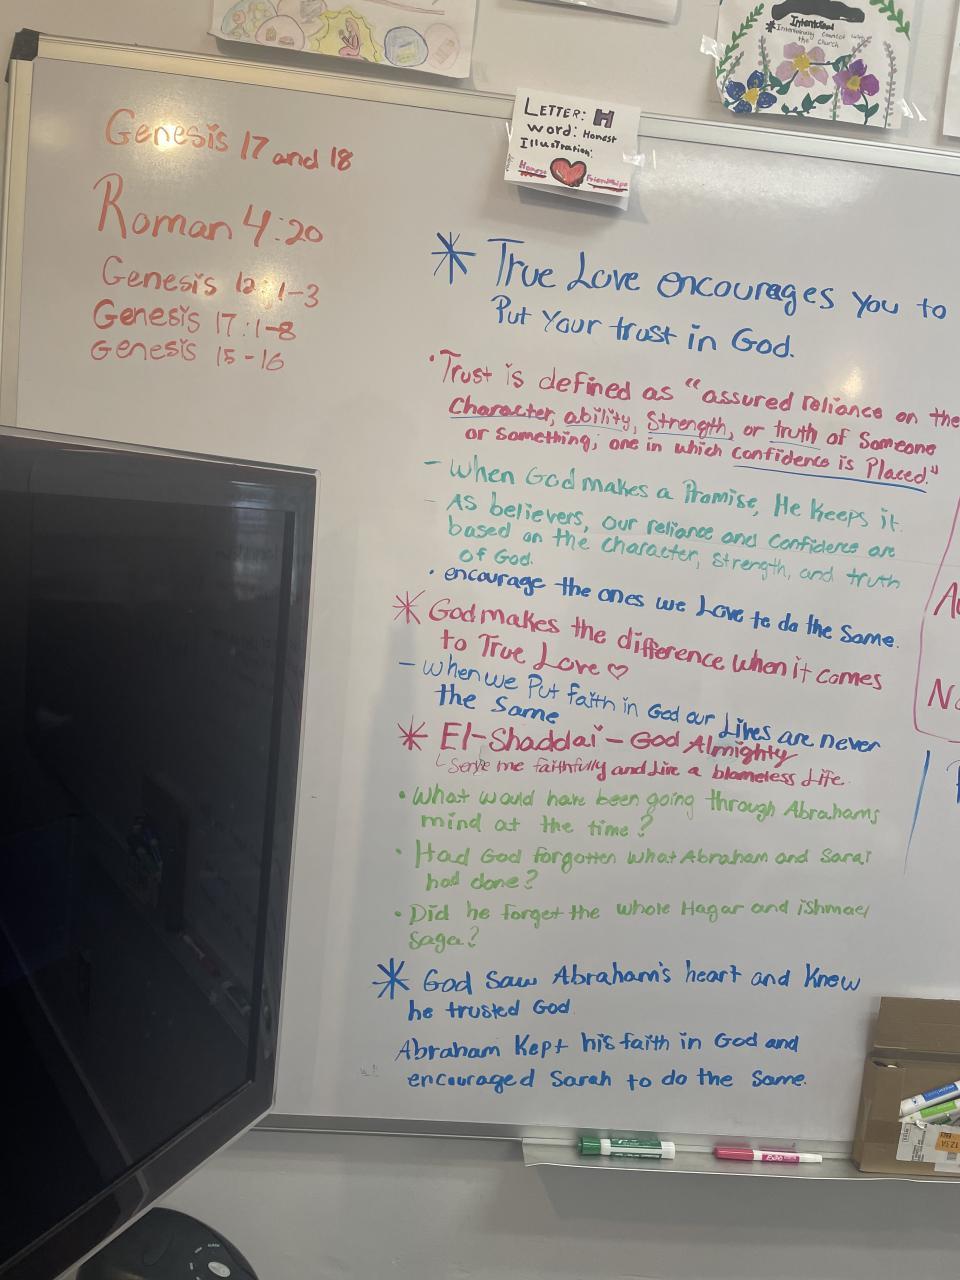 Intentional
*Intentionally connect with
the church
LETTER: H
word: Honest
Illustration:
Honest
Friendships
Genesis 17 and 18
Roman 4:20
Genesis 12:1-3
Genesis 17:1-8
Genesis 15-16
* True Love encourages you to
Put Your trust in God.
• Trust is defined as "assured reliance on the
Character, ability, Strength, or truth of Someone
or Something; one in which confidence is Placed."
- When God makes a Promise, He keeps it.
- As believers, our reliance and Confidence are
based on the character, strength, and truth
of God.
• encourage the ones we Love to do the Same.
* God makes the difference when it comes
to True Love ♡
- when we Put faith in God our Lives are never
the Same
* El-Shaddai - God Almighty
Serve me faithfully and Live a blameless Life.
• What would have been going through Abrahams
mind at the time?
• Had God forgotten what Abraham and Sarai
had done?
• Did he forget the whole Hagar and ishmael
Saga?
* God Saw Abraham's heart and Knew
he trusted God
Abraham Kept his faith in God and
encouraged Sarah to do the Same.
EXPO